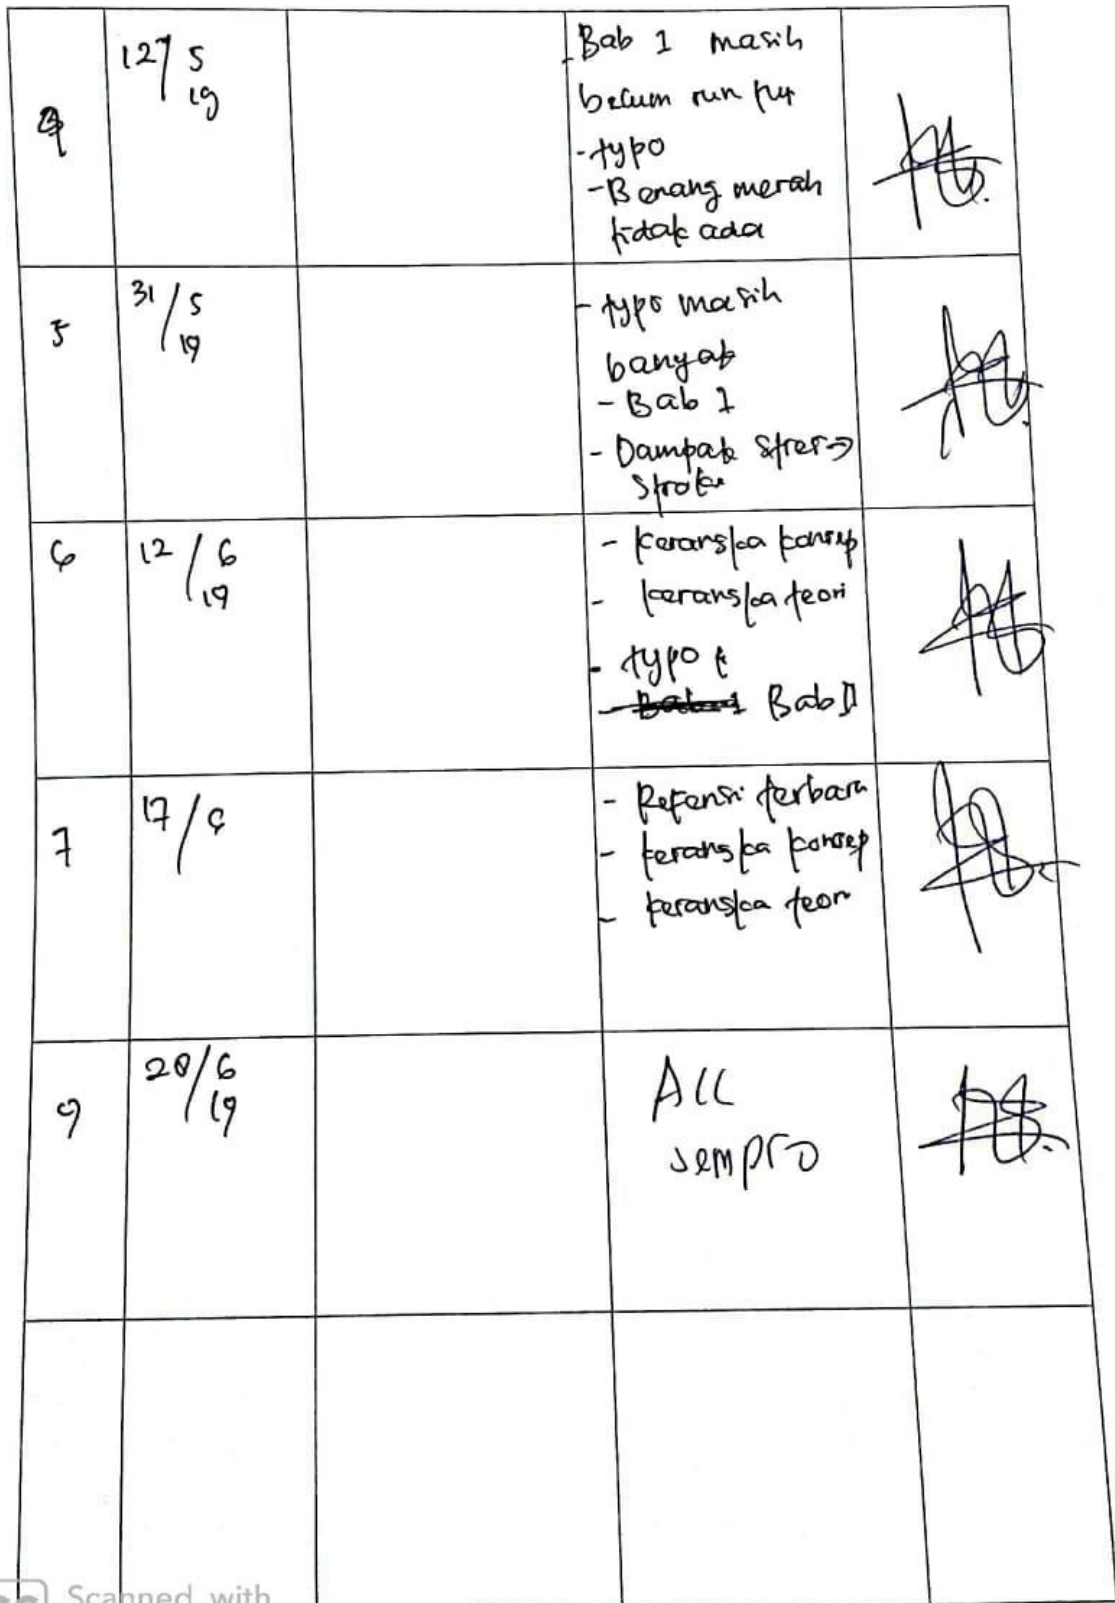 4
12/5
19
- Bab 1 masih
belum runtut
- typo
- Benang merah
tidak ada
5
31/5
19
- typo masih
banyak
- Bab 1
- Dampak stres →
stroke
6
12/6
19
- kerangka konsep
- kerangka teori
- typo
- Bab II
7
17/6
- Refensi terbaru
- kerangka konsep
- kerangka teori
9
20/6
19
ACC
sempro
Scanned with